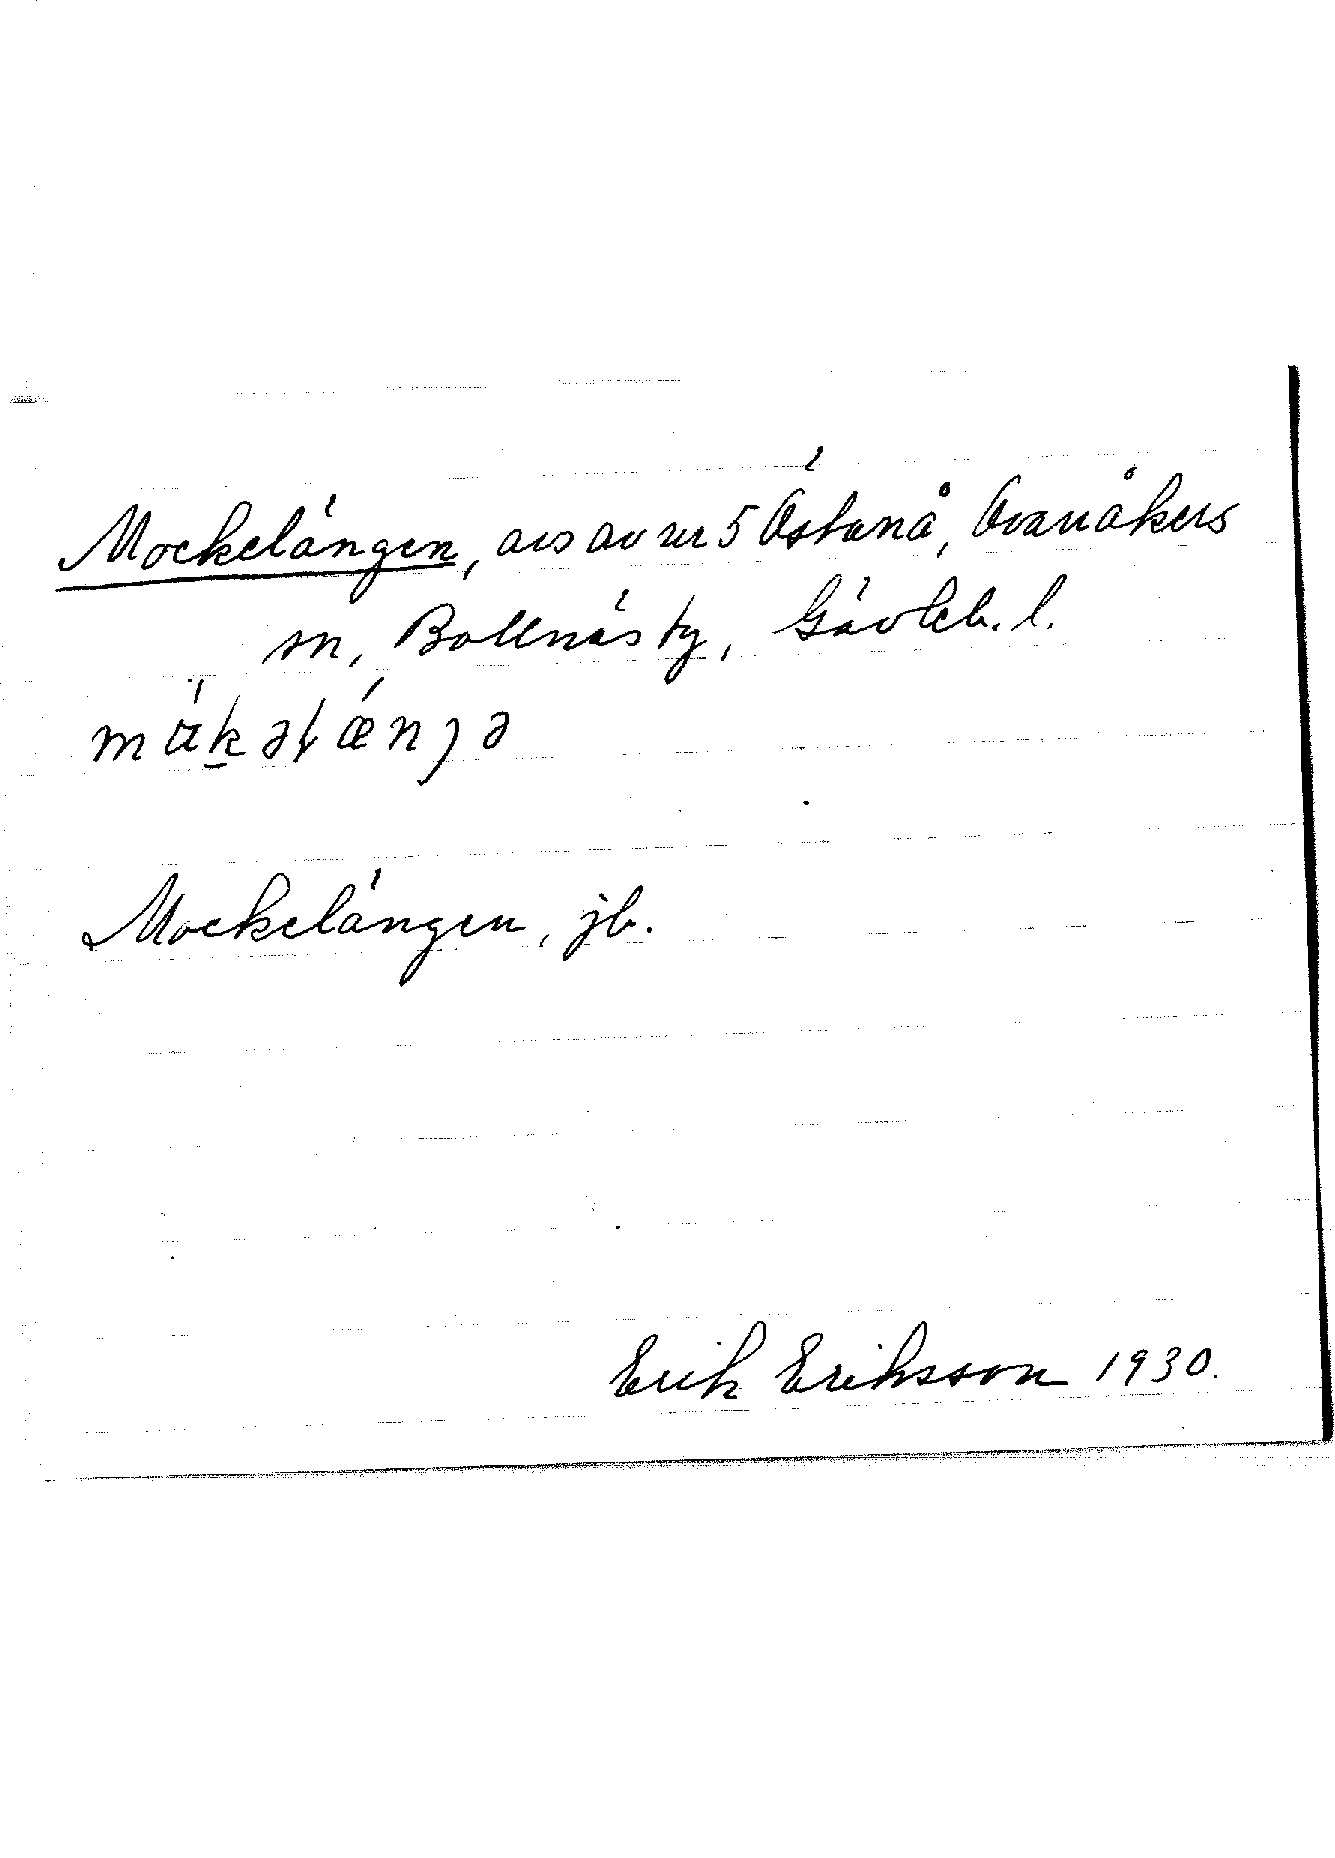 Mockelängen, avs av nr 5 Östanå, Ovanåkers
sn, Bollnäs tg, Gävleb. l.
Mockelängen, jb.
Erik Eriksson 1930.